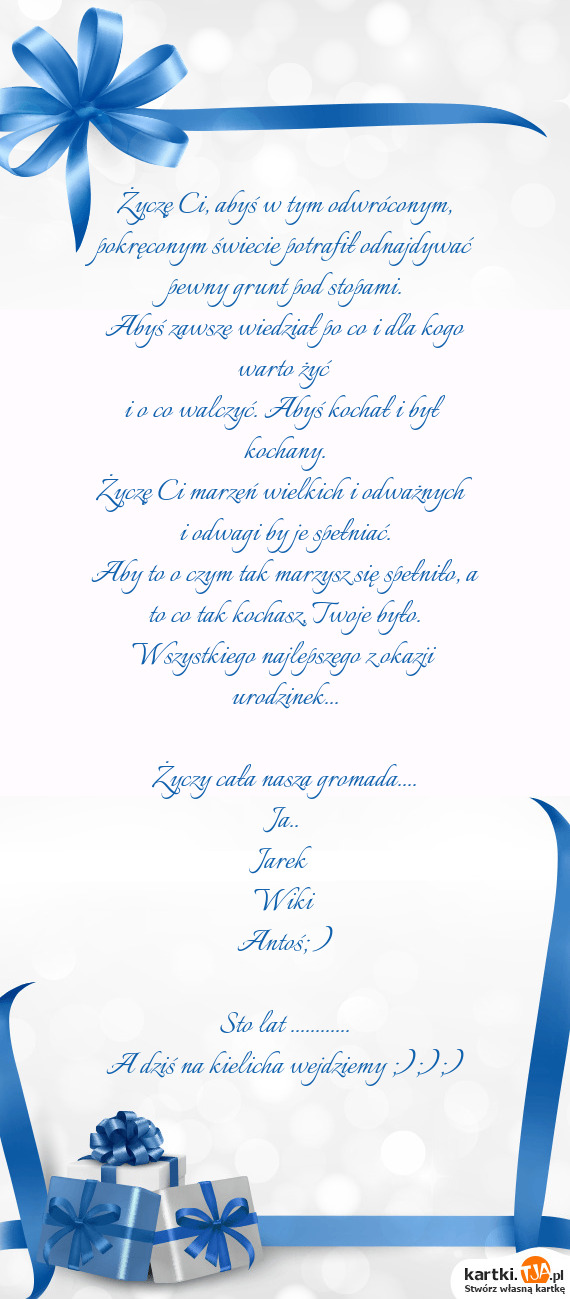 Życzę Ci, abyś w tym odwróconym,
pokręconym świecie potrafił odnajdywać
pewny grunt pod stopami.
Abyś zawsze wiedział po co i dla kogo
warto żyć
i o co walczyć. Abyś kochał i był
kochany.
Życzę Ci marzeń wielkich i odważnych
i odwagi by je spełniać.
Aby to o czym tak marzysz się spełniło, a
to co tak kochasz, Twoje było.
Wszystkiego najlepszego z okazji
urodzinek...
Życzy cała nasza gromada....
Ja..
Jarek
Wiki
Antoś; )
Sto lat ............
A dziś na kielicha wejdziemy ;) ;) ;)
kartki.TJA.pl
Stwórz własną kartkę